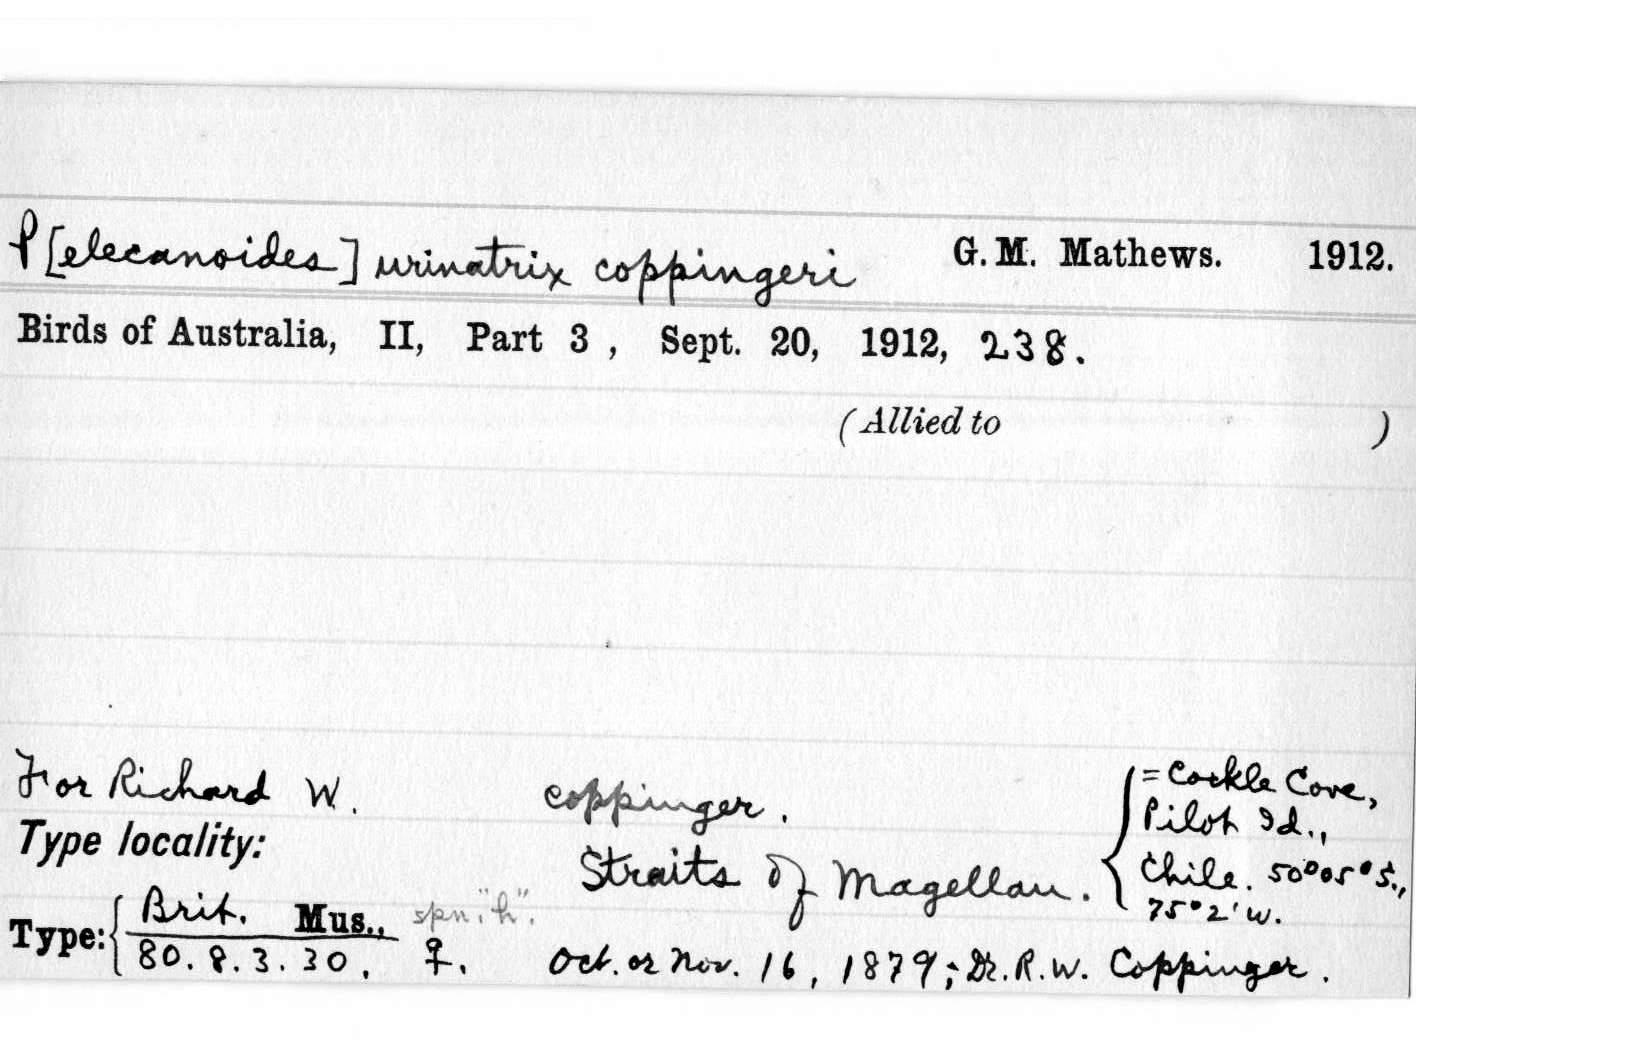 P[elecanoides] urinatrix coppingeri G. M. Mathews. 1912.
Birds of Australia, II, Part 3, Sept. 20, 1912, 238.
(Allied to )
For Richard W. coppinger.
Type locality: Straits of Magellan. { = Cockle Cove, Pilot Id., Chile. 50°05°S., 75°2'W.
Type: { Brit. Mus., spn. "h".
80.8.3.30, ♀. Oct. or Nov. 16, 1879; Dr. R. W. Coppinger.